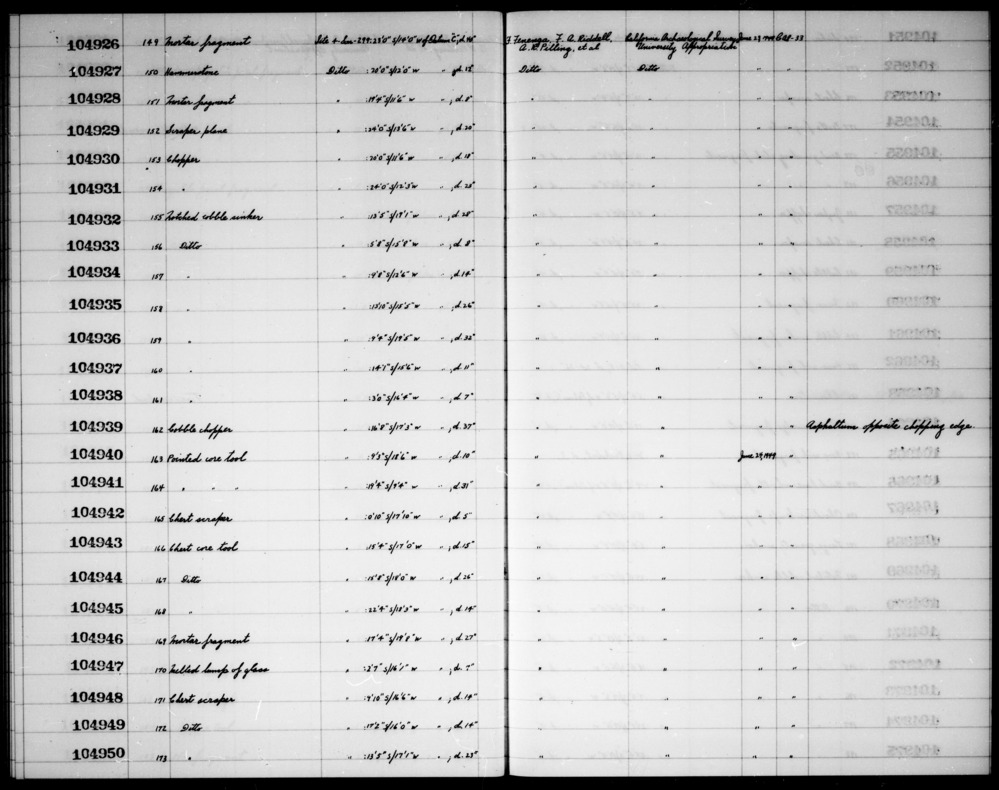 104926 149 Mortar fragment Site 4-Son-299:23'0" S/14'0" W of Datum "C", d. F. Fenenga, F. A. Riddell, A. R. Pilling, et al California Archaeological Survey University Appropriation June 1949
104927 150 Hammerstone Ditto :20'0" S/12'0" W " d. 12" Ditto Ditto " "
104928 151 Mortar fragment " :19'4" S/11'6" W " ; d. 8" " " " "
104929 152 Scraper plane " :24'0" S/13'6" W " ; d. 20" " " " "
104930 153 Chopper " :20'0" S/11'6" W " ; d. 18" " " " "
104931 154 " " :24'0" S/12'3" W " ; d. 25" " " " "
104932 155 Notched cobble sinker " :13'5" S/19'1" W " ; d. 28" " " " "
104933 156 Ditto " :5'8" S/15'8" W " ; d. 8" " " " "
104934 157 " " :9'8" S/12'6" W " ; d. 14" " " " "
104935 158 " " :13'10" S/15'5" W " ; d. 26" " " " "
104936 159 " " :9'4" S/19'5" W " ; d. 32" " " " "
104937 160 " " :14'1" S/15'6" W " ; d. 11" " " " "
104938 161 " " :3'0" S/16'4" W " ; d. 7" " " " "
104939 162 Cobble chopper " :16'8" S/17'3" W " ; d. 37" " " " " Asphaltum opposite chopping edge
104940 163 Pointed core tool " :9'3" S/18'6" W " ; d. 10" " " June 29, 1949 "
104941 164 " " " " :19'4" S/9'4" W " ; d. 31" " " " "
104942 165 Chert scraper " :0'10" S/17'10" W " ; d. 5" " " " "
104943 166 Chert core tool " :15'4" S/17'0" W " ; d. 15" " " " "
104944 167 Ditto " :15'8" S/18'0" W " ; d. 26" " " " "
104945 168 " " :22'4" S/18'3" W " ; d. 14" " " " "
104946 169 Mortar fragment " :17'4" S/19'8" W " ; d. 27" " " " "
104947 170 Milled lump of glass " :2'7" S/16'1" W " ; d. 7" " " " "
104948 171 Chert scraper " :9'10" S/16'6" W " ; d. 19" " " " "
104949 172 Ditto " :17'2" S/16'0" W " ; d. 14" " " " "
104950 173 " " :13'5" S/17'1" W " ; d. 23" " " " "